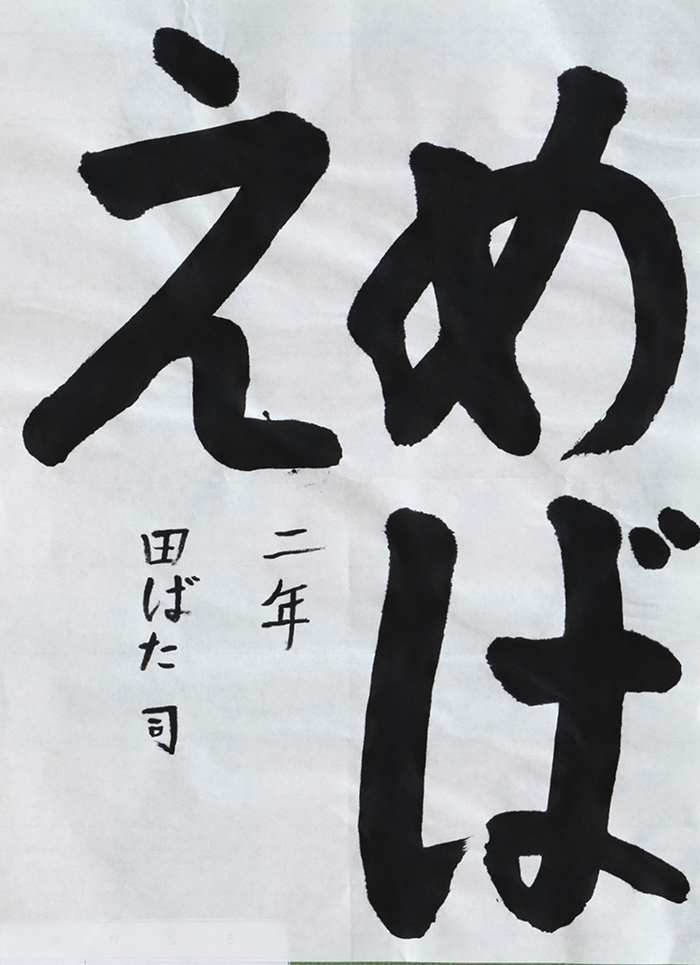 めば
え
二年
田ばた 司